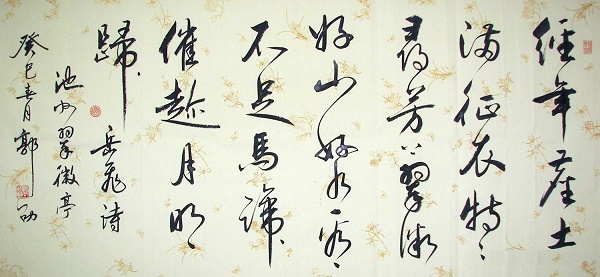 經年塵土
满征衣特特
尋芳上翠微
好山好水看
不足馬蹄
催趁月明
歸
岳飛诗
池州翠微亭
癸巳春月郭